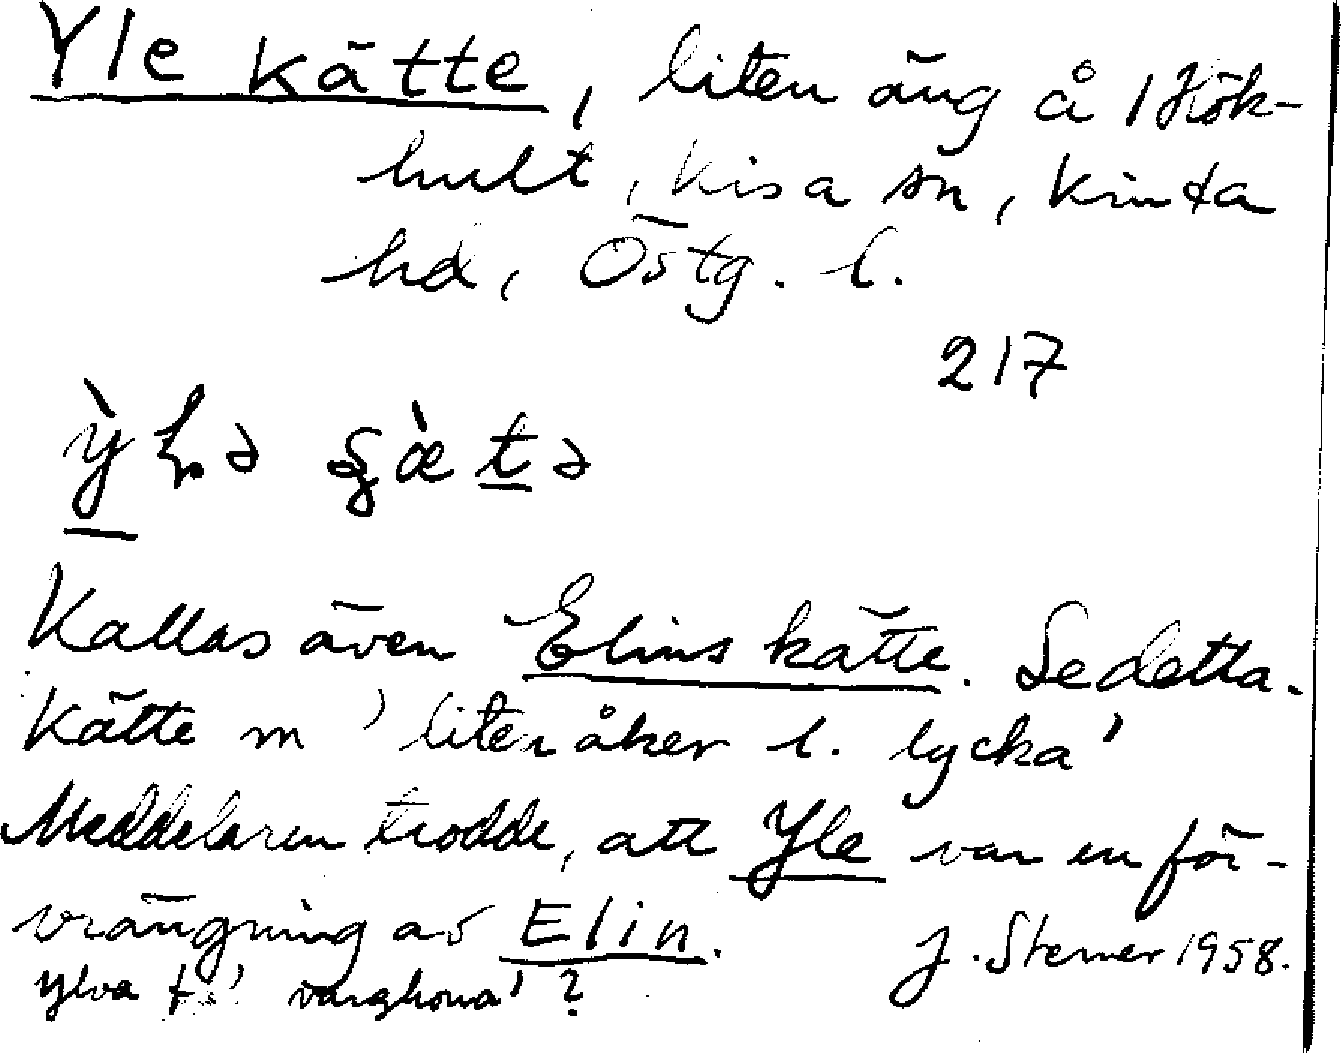 Yle kätte, liten äng å Hök-
hult, Kisa sn, Kinda
hd, Östg. l.
217
Kallas även Elins kätte. Se detta.
Kätte m 'liten åker l. lycka'
Meddelaren trodde, att Yle var en för-
vrängning av Elin. J. Sterner 1958.
Ylva f. 'varghona'?